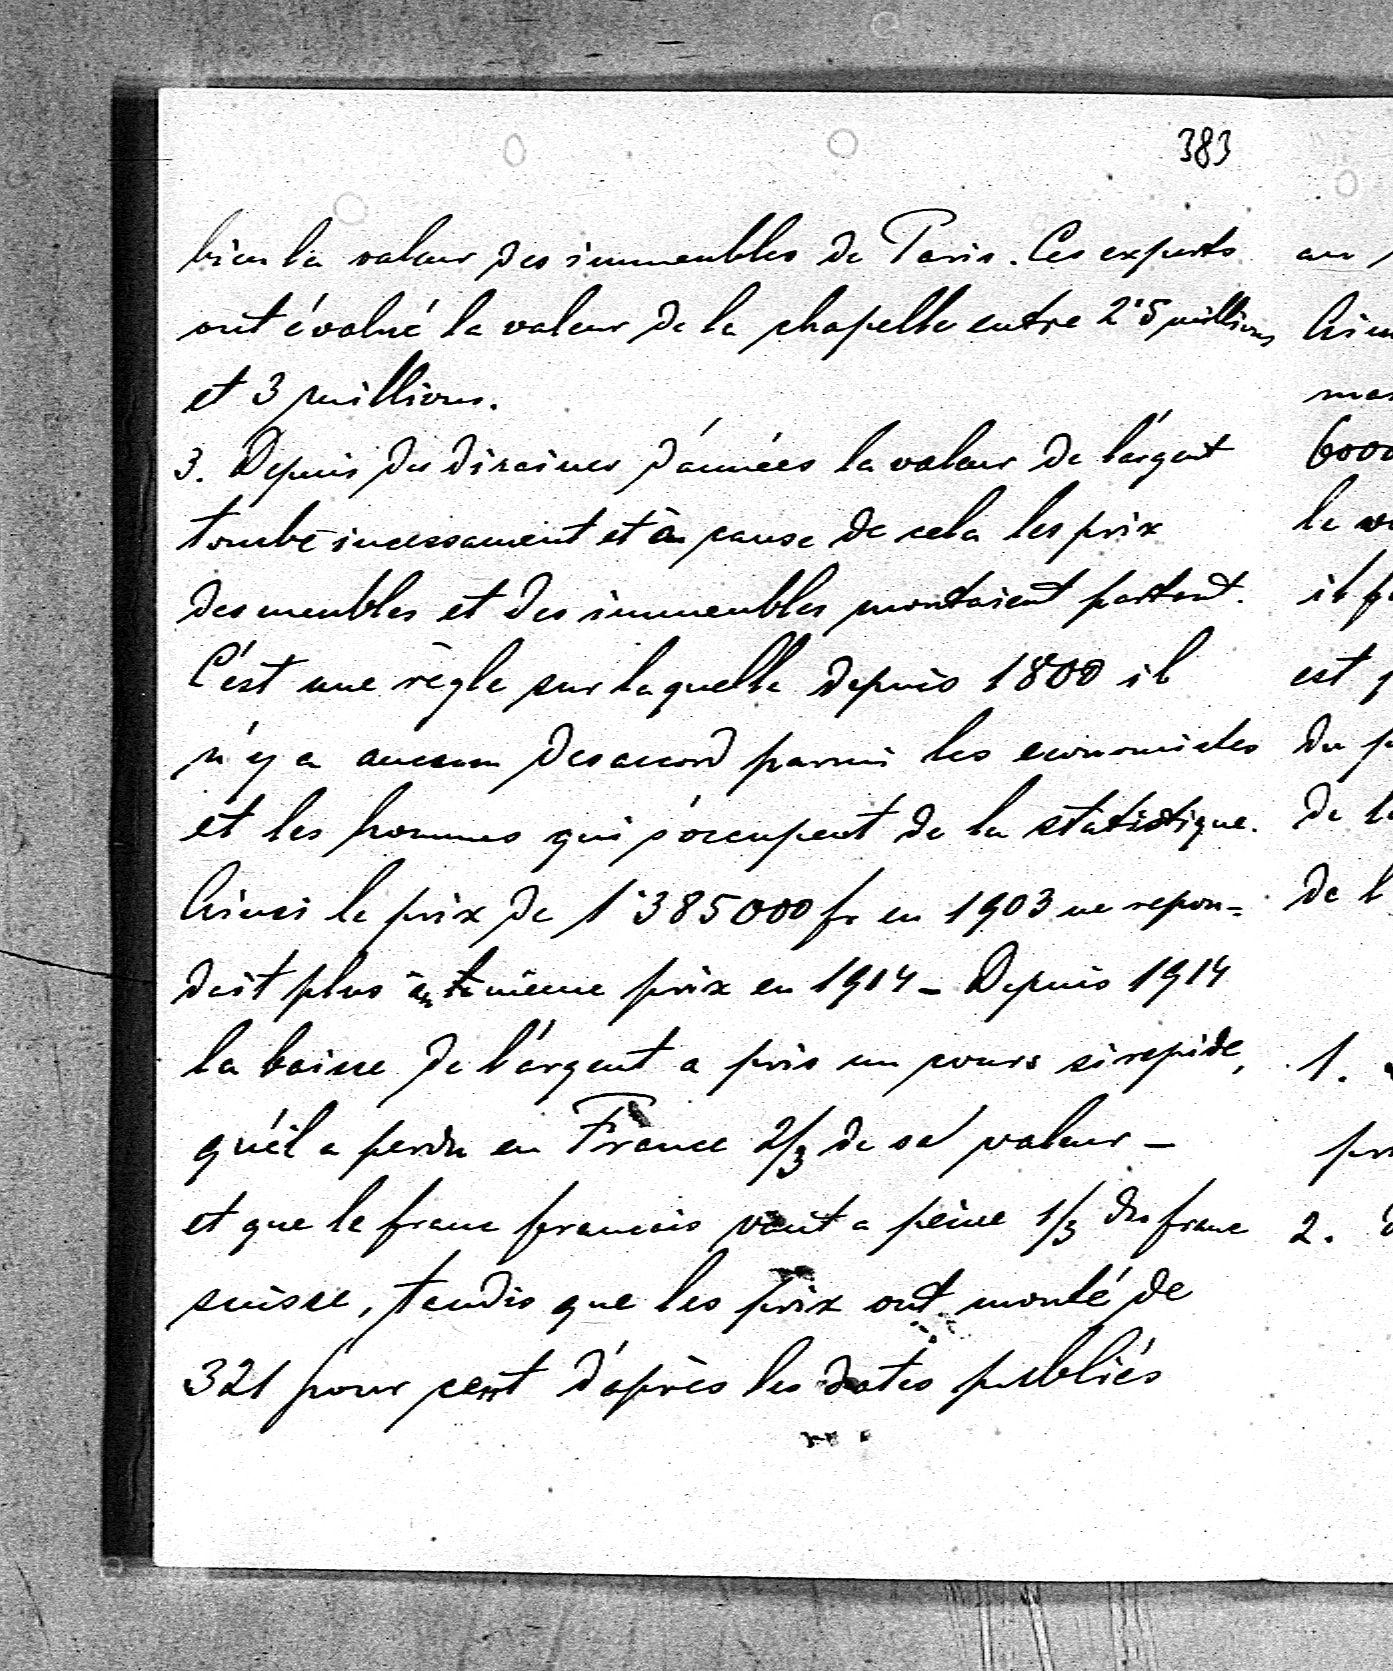 383
bien la valeur des immeubles de Paris. Ces experts
ont évalué la valeur de la chapelle entre 2'5 millions
et 3 millions.
3. Depuis des disaines d'années la valeur de l'argent
tombe incessament et à cause de cela les prix
des meubles et des immeubles montaient partout.
C'est une règle sur laquelle depuis 1800 il
n'y a aucun desaccord parmi les economistes
et les hommes qui s'occupent de la statistique.
Ainsi le prix de 1'385000 fr en 1903 ne repon=
dait plus au même prix en 1914 - Depuis 1914
la baisse de l'argent a pris un cours si rapide,
qu'il a perdu en France 2/3 de sa valeur -
et que le franc francais vaut a peine 1/3 du franc
suisse, tandis que les prix ont monté de
321 pour cent d'après les dates publiés
au
Ainsi
6000
la
il
est
du
de
de l
1.
2.